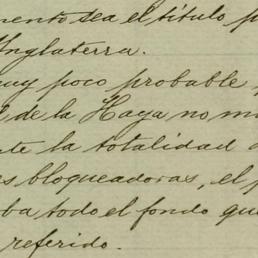 mento sea el título p
Inglaterra.
muy poco probable
l de la Haya no m
te la totalidad d
es bloqueadoras, el p
ba todo el fondo que
referido.